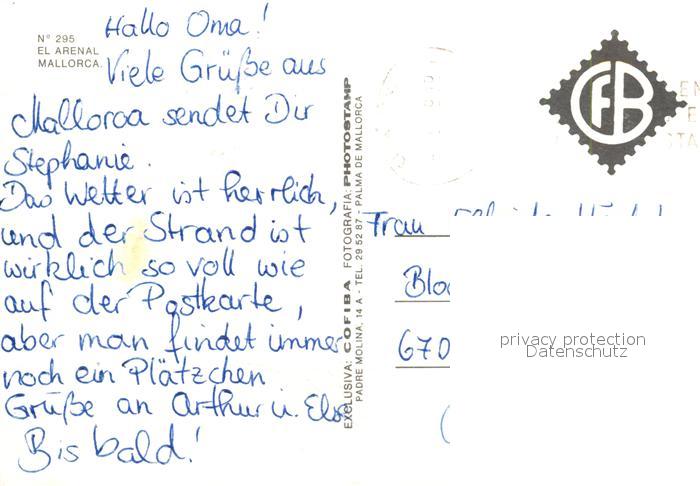 Nº 295
EL ARENAL
MALLORCA.
Hallo Oma!
Viele Grüße aus
Mallorca sendet Dir
Stephanie.
Das Wetter ist herrlich,
und der Strand ist
wirklich so voll wie
auf der Postkarte,
aber man findet immer
noch ein Plätzchen
Grüße an Arthur u. Else
Bis bald!
EXCLUSIVA: COFIBA FOTOGRAFIA: PHOTOSTAMP
PADRE MOLINA, 14 A - TEL. 29 52 87 - PALMA DE MALLORCA
CFB
Frau
670
privacy protection
Datenschutz